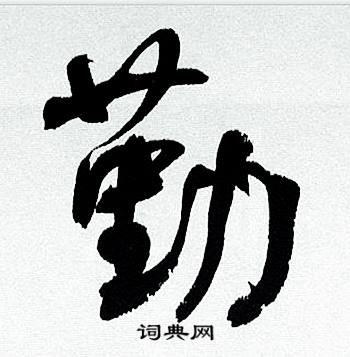 勤
词典网